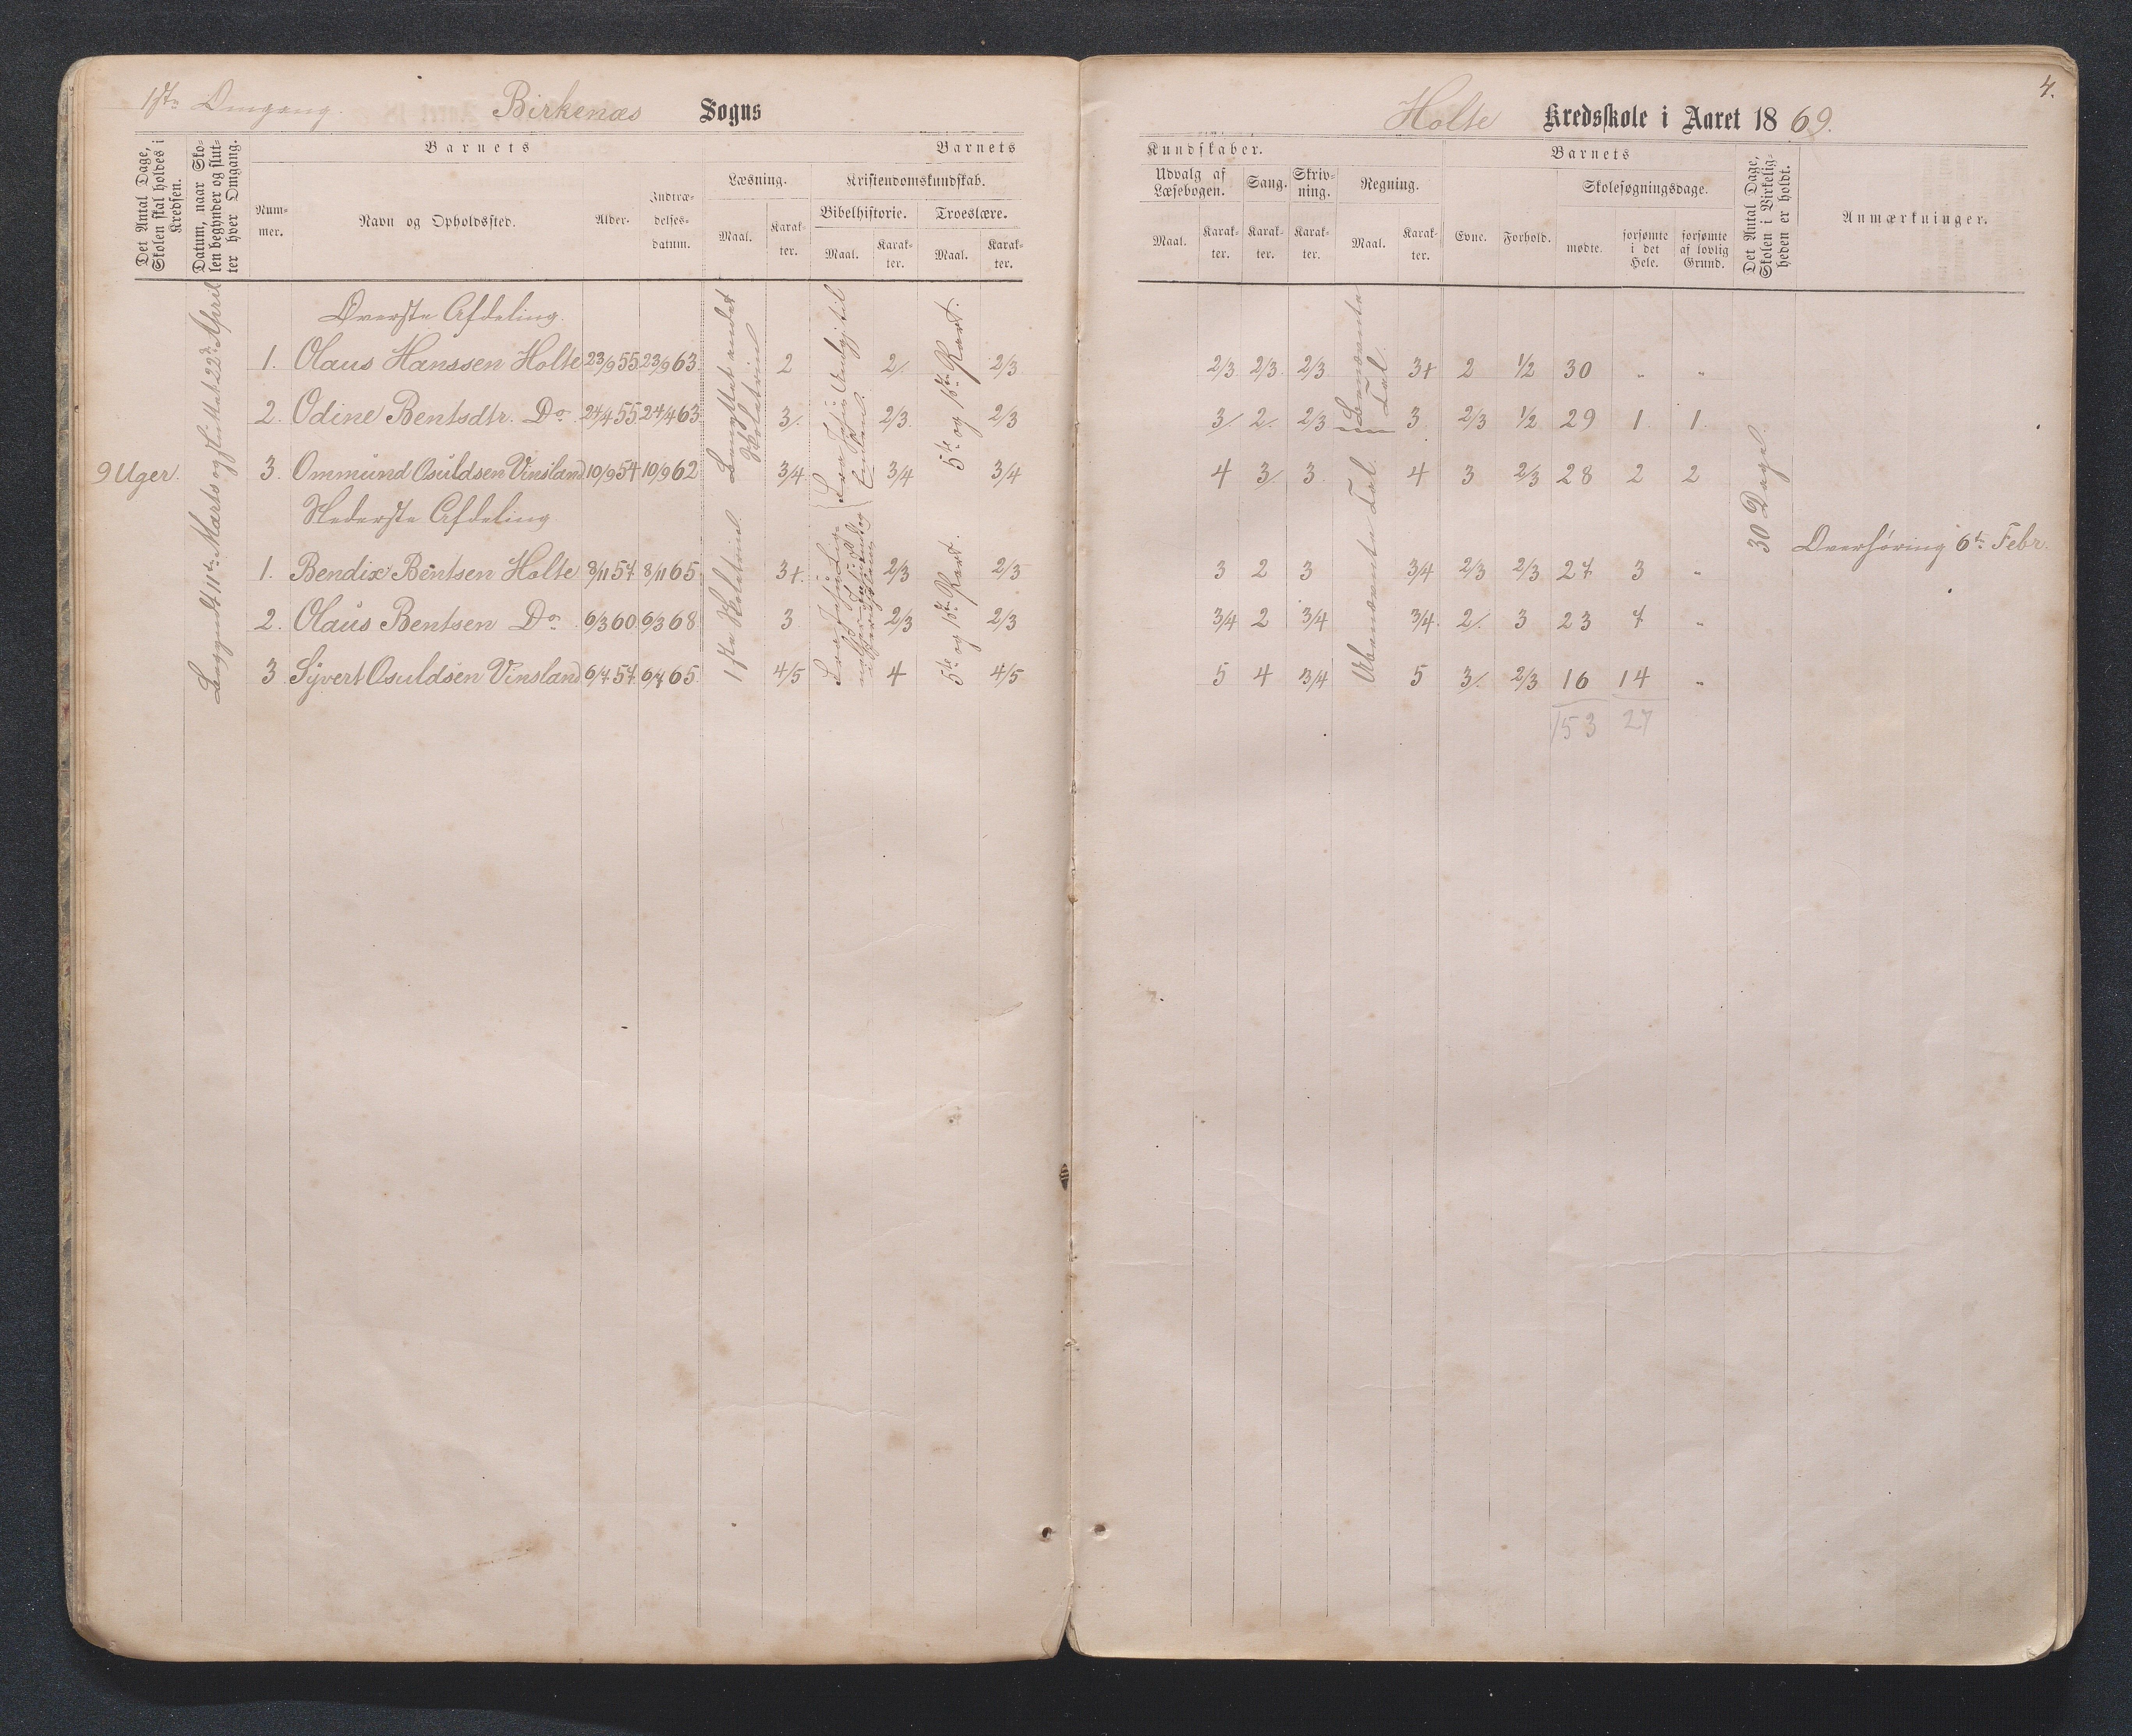 1ste Omgang.
Birkenæs Sogns
Det Antal Dage, Skolen skal holdes i Kredsen.
Datum, naar Skolen begynder og slutter hver Omgang.
Barnets
Nummer.
Navn og Opholdssted.
Alder.
Indtrædelsesdatum.
Barnets
Læsning.
Maal.
Karakter.
Kristendomskundskab.
Bibelhistorie.
Maal.
Karakter.
Troeslære.
Maal.
Karakter.
9 Uger.
Begyndt 11te Marts og sluttet 22de April
Øverste Afdeling.
1. Olaus Hanssen Holte 23/9 55 23/9 63. 2 2/. 2/3
2. Odine Bentsdtr. Do 24/4 55 24/4 63. 3/. 2/3. 2/3
3. Ommund Osuldsen Vinsland 10/9 54 10/9 62 3/4 3/4 3/4
Nederste Afdeling
1. Bendix Bentsen Holte 8/11 57 8/11 65. 3+. 2/3 2/3
2. Olaus Bentsen Do 6/3 60 6/3 68 3 2/3 2/3
3 Syvert Osuldsen Vinsland 6/7 57 6/7 65. 4/5 4 4/5
Benyttet andet Skoletrin
1ste Skoletrin
5te og 1ste Part.
5te og 1ste Part.
4.
Holte Kredsskole i Aaret 1869.
Kundskaber.
Udvalg af Læsebogen.
Maal.
Karakter.
Sang.
Karakter.
Skrivning.
Karakter.
Regning.
Maal.
Karakter.
Barnets
Evne.
Forhold.
Skolesøgningsdage.
mødte.
forsømte i det Hele.
forsømte af lovlig Grund.
Det Antal Dage, Skolen i Virkeligheden er holdt.
Anmærkninger.
Benævnte Tal
Ubenævnte Tal.
2/3 2/3 2/3 3+ 2 1/2 30 " "
3/ 2/. 2/3 3 2/3 1/2 29 1 1
4 3/ 3 4 3 2/3 28 2 2
3 2 3 3/4 2/3 2/3 27 3 "
3/4 2 3/4 3/4. 2/. 3 23 7 "
5 4 3/4 5 3/. 2/3 16 14 "
153 27
30 Dage.
Overhøring 6te Febr.